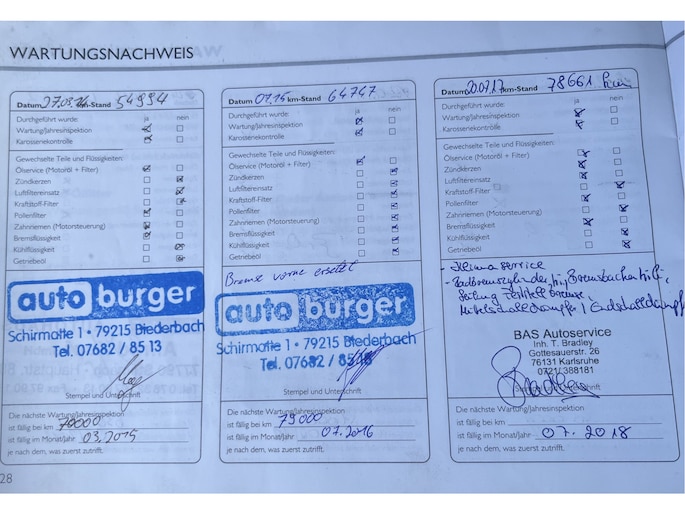 WARTUNGSNACHWEIS
Datum 27.03.14 km-Stand 54994
Durchgeführt wurde: ja nein
Wartung/Jahresinspektion
Karosseriekontrolle
Gewechselte Teile und Flüssigkeiten:
Ölservice (Motoröl + Filter)
Zündkerzen
Luftfiltereinsatz
Kraftstoff-Filter
Pollenfilter
Zahnriemen (Motorsteuerung)
Bremsflüssigkeit
Kühlflüssigkeit
Getriebeöl
auto burger
Schirmatte 1 • 79215 Biederbach
Tel. 07682 / 85 13
Stempel und Unterschrift
Die nächste Wartung/Jahresinspektion
ist fällig bei km 79000
ist fällig im Monat/Jahr 03.2015
je nach dem, was zuerst zutrifft.
28
Datum 07.15 km-Stand 64747
Durchgeführt wurde: ja nein
Wartung/Jahresinspektion
Karosseriekontrolle
Gewechselte Teile und Flüssigkeiten:
Ölservice (Motoröl + Filter)
Zündkerzen
Luftfiltereinsatz
Kraftstoff-Filter
Pollenfilter
Zahnriemen (Motorsteuerung)
Bremsflüssigkeit
Kühlflüssigkeit
Getriebeöl
Bremse vorne ersetzt
auto burger
Schirmatte 1 • 79215 Biederbach
Tel. 07682 / 85 13
Stempel und Unterschrift
Die nächste Wartung/Jahresinspektion
ist fällig bei km 79000
ist fällig im Monat/Jahr 07.2016
je nach dem, was zuerst zutrifft.
Datum 20.07.17 km-Stand 78661
Durchgeführt wurde: ja nein
Wartung/Jahresinspektion
Karosseriekontrolle
Gewechselte Teile und Flüssigkeiten:
Ölservice (Motoröl + Filter)
Zündkerzen
Luftfiltereinsatz
Kraftstoff-Filter
Pollenfilter
Zahnriemen (Motorsteuerung)
Bremsflüssigkeit
Kühlflüssigkeit
Getriebeöl
- Klimaservice
BAS Autoservice
Inh. T. Bradley
Gottesauerstr. 26
76131 Karlsruhe
0721/388181
Die nächste Wartung/Jahresinspektion
ist fällig bei km
ist fällig im Monat/Jahr 07.2018
je nach dem, was zuerst zutrifft.